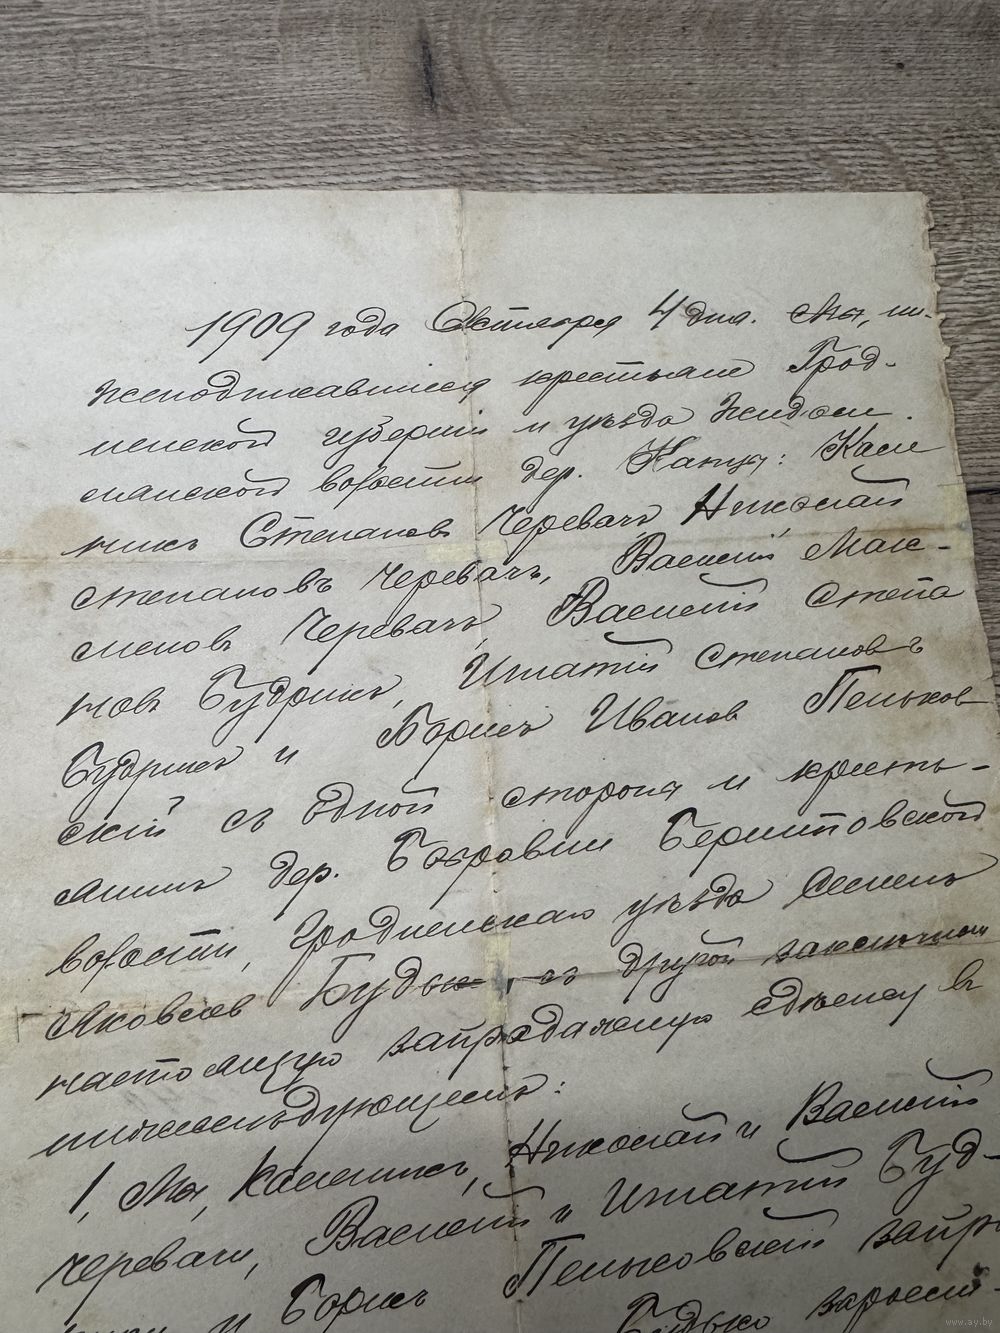 1909 года Октября 4 дня. Мы, ни-
жеподписавшиеся крестьяне Грод-
ненской губерніи и уѣзда Жидом
ланской волости дер. Капцы: Кали
никъ Степановъ Черевачъ, Николай
Степановъ Черевачъ, Василій Мак-
симовъ Черевачъ, Василій Степа
новъ Будникъ, Игнатій Степановъ
Будникъ и Борисъ Ивановъ Пеньков
скій съ одной стороны и кресть-
янинъ дер. Бобровни Берштовской
волости, Гродненскаго уѣзда Семенъ
Яковлевъ Будько, съ другой заключили
настоящую запродажную сдѣлку въ
нижеслѣдующемъ:
1, Мы, Калиникъ, Николай и Василій
Черевачи, Василій и Игнатій Буд-
и Борисъ Пеньковскій запр
Будько
www.ay.by